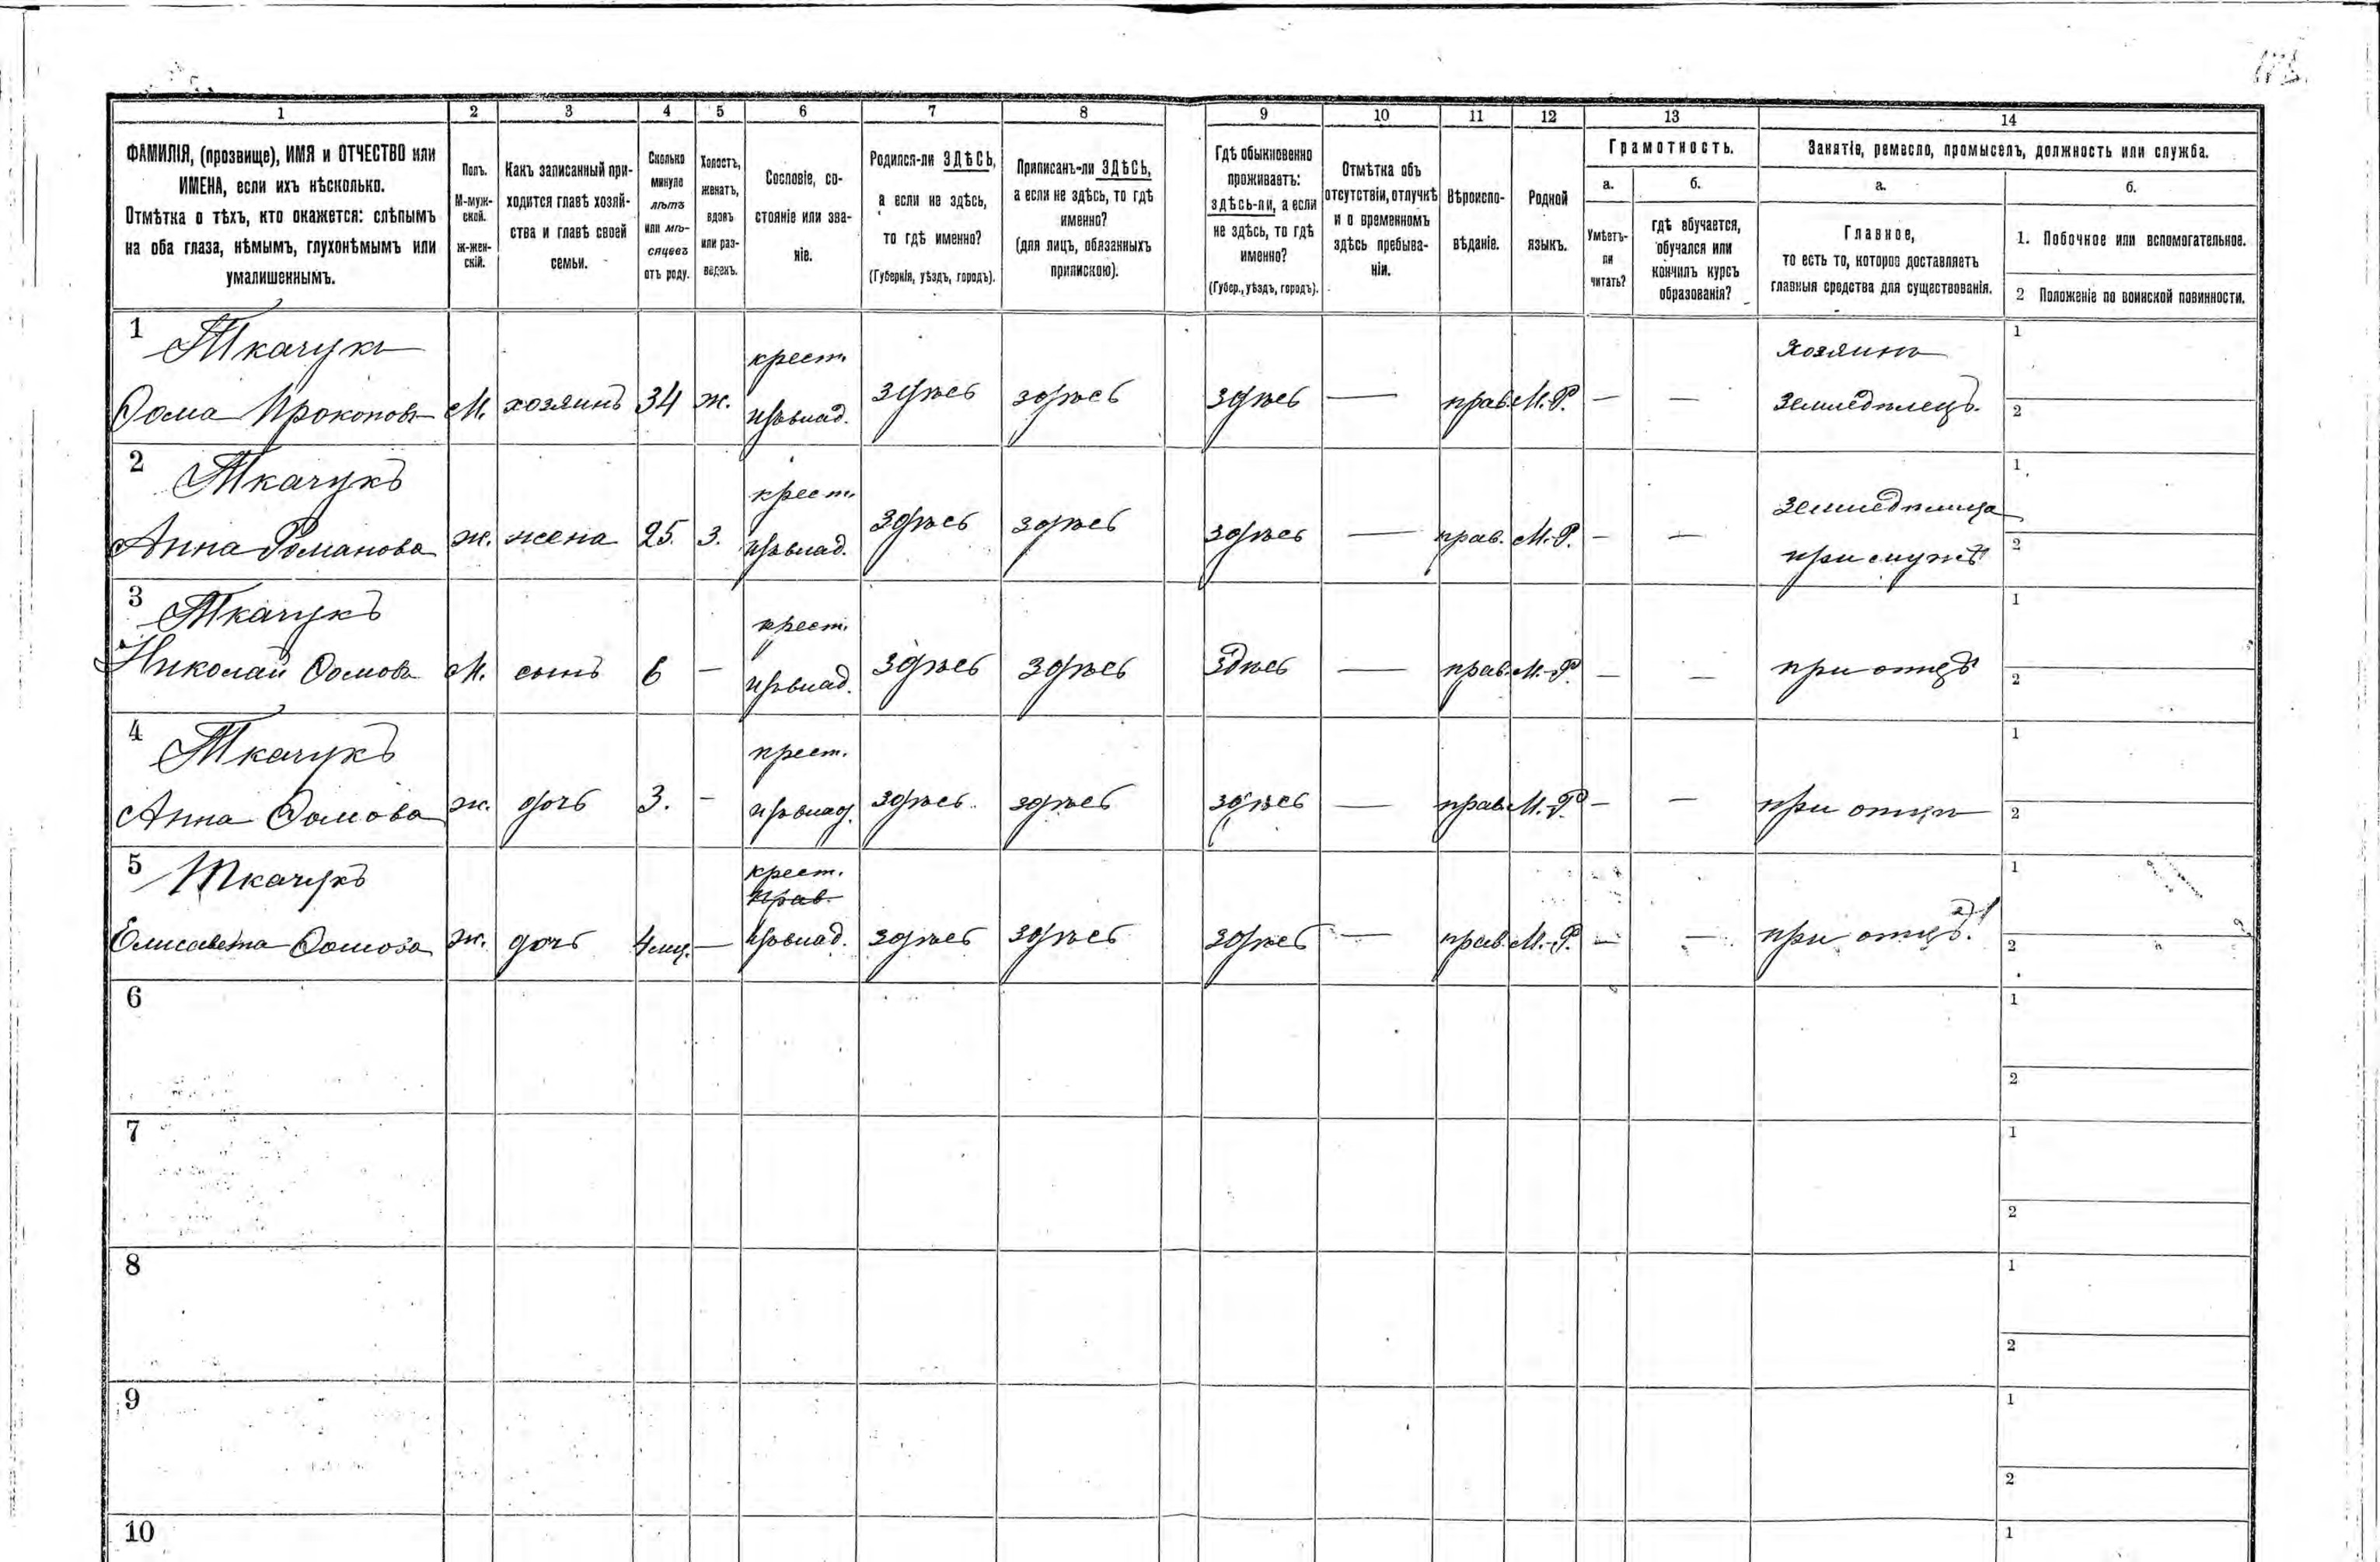 1 2 3 4 5 6 7 8 9 10 11 12 13 14
ФАМИЛІЯ, (прозвище), ИМЯ и ОТЧЕСТВО или
ИМЕНА, если ихъ нѣсколько.
Отмѣтка о тѣхъ, кто окажется: слѣпымъ
на оба глаза, нѣмымъ, глухонѣмымъ или
умалишеннымъ.
Полъ.
М-муж-
ской.
ж-жен-
скій.
Какъ записанный при-
ходится главѣ хозяй-
ства и главѣ своей
семьи.
Сколько
минуло
лѣтъ
или мѣ-
сяцевъ
отъ роду.
Холостъ,
женатъ,
вдовъ
или раз-
веденъ.
Сословіе, со-
стояніе или зва-
ніе.
Родился-ли ЗДѢСЬ,
а если не здѣсь,
то гдѣ именно?
(Губернія, уѣздъ, городъ).
Приписанъ-ли ЗДѢСЬ,
а если не здѣсь, то гдѣ
именно?
(для лицъ, обязанныхъ
припискою).
Гдѣ обыкновенно
проживаетъ:
здѣсь-ли, а если
не здѣсь, то гдѣ
именно?
(Губер., уѣздъ, городъ).
Отмѣтка объ
отсутствіи, отлучкѣ
и о временномъ
здѣсь пребыва-
ніи.
Вѣроиспо-
вѣданіе.
Родной
языкъ.
Грамотность.
а.
Умѣетъ-
ли
читать?
б.
гдѣ обучается,
обучался или
кончилъ курсъ
образованія?
Занятіе, ремесло, промыселъ, должность или служба.
а.
Главное,
то есть то, которое доставляетъ
главныя средства для существованія.
б.
1. Побочное или вспомогательное.
2 Положеніе по воинской повинности.
1 Ткачукъ крест. хозяинъ 1
Ѳома Прокоповъ М. хозяинъ 34 ж. здѣсь здѣсь здѣсь — прав. М.-Р. — — земледѣлецъ. 2
2 Ткачукъ крест. земледѣлица 1
Анна Романова ж. жена 25. з. здѣсь здѣсь здѣсь — прав. М.-Р. — — при мужѣ 2
3 Ткачукъ крест. 1
Николай Ѳомовъ М. сынъ 6 — здѣсь здѣсь здѣсь — прав. М.-Р. — — при отцѣ 2
4 Ткачукъ крест. 1
Анна Ѳомова ж. дочь 3. — здѣсь здѣсь здѣсь — прав. М.-Р. — — при отцѣ 2
5 Ткачукъ крест. 1
Елисавета Ѳомова ж. дочь 4 мѣс. — здѣсь здѣсь здѣсь — прав. М.-Р. — — при отцѣ. 2
6 1
2
7 1
2
8 1
2
9 1
2
10 1